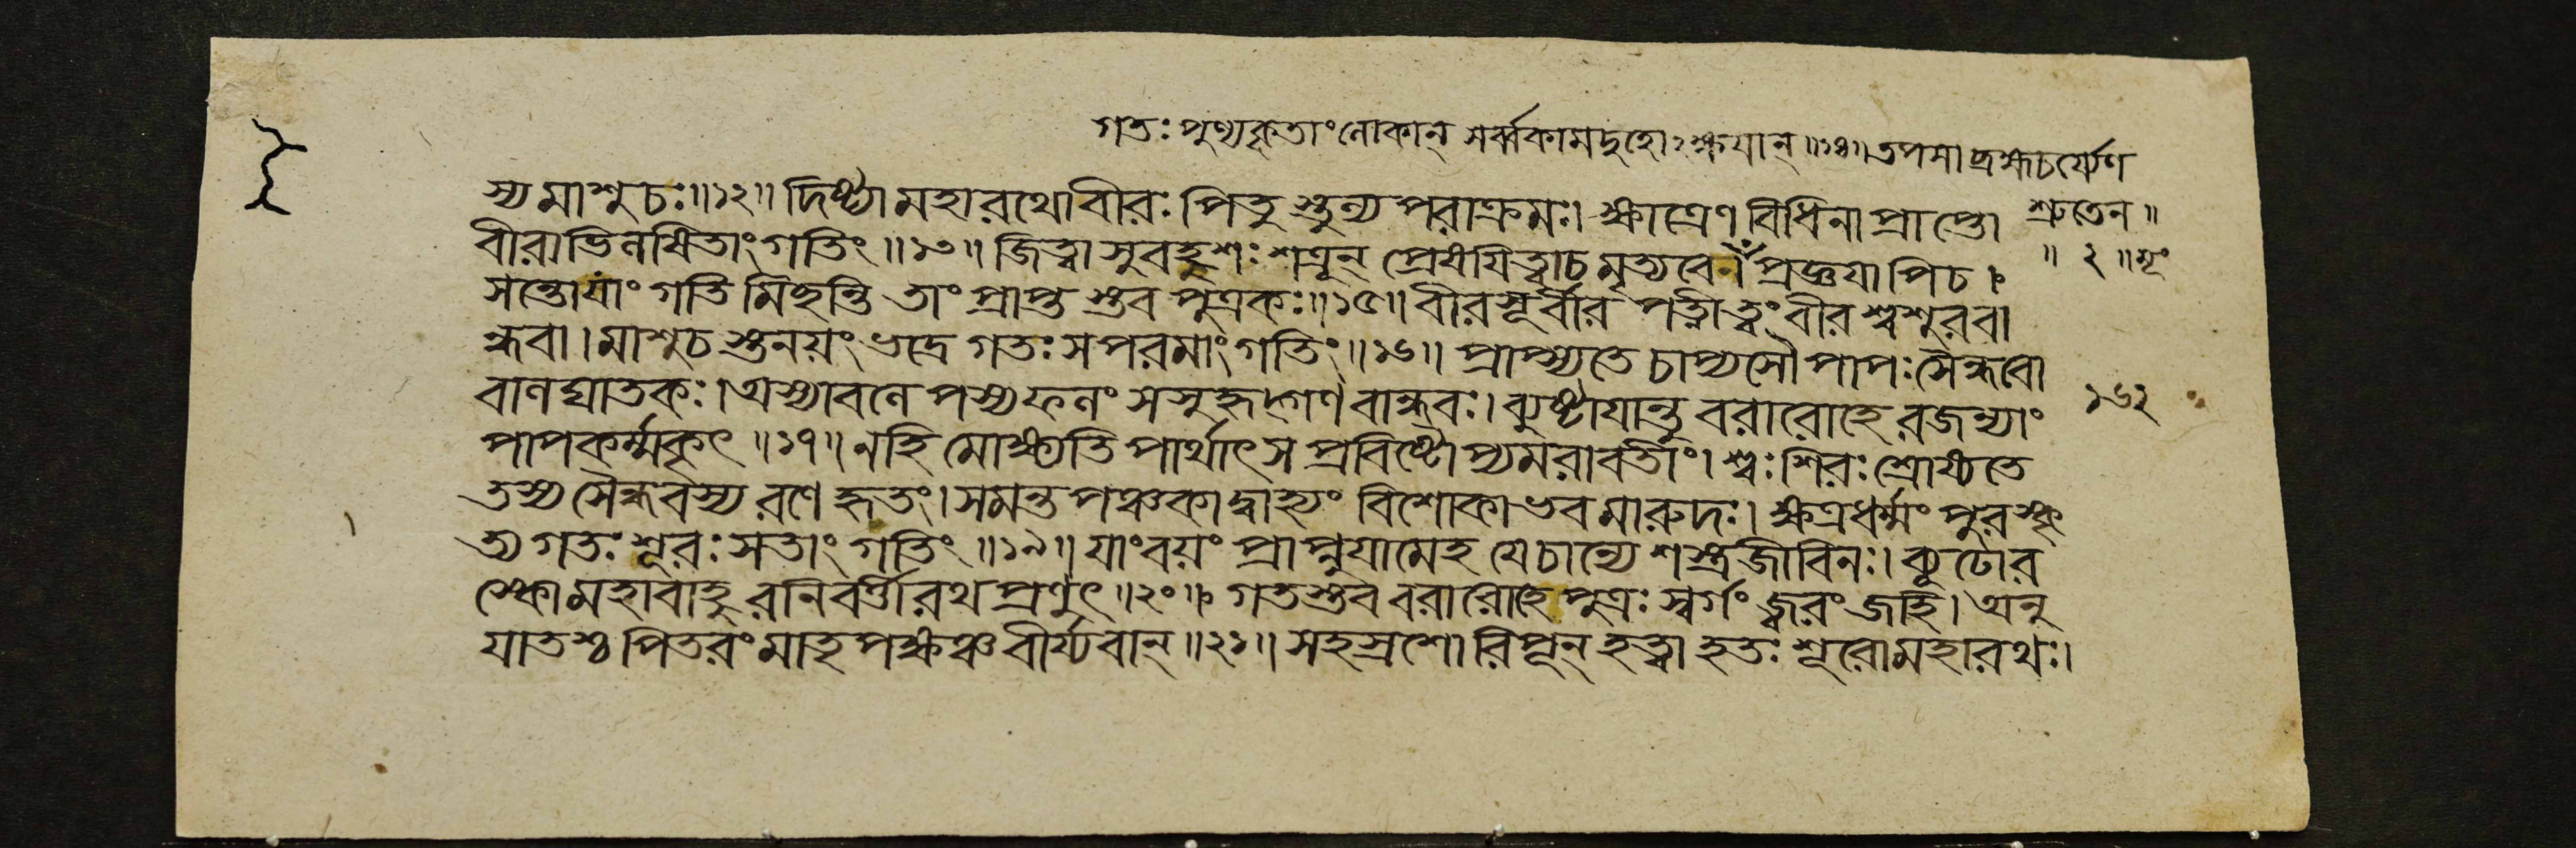 গতঃ পুণ্যকৃতাং লোকান্ সর্ব্বকামদুহোঽক্ষয়ান্ ॥১৪॥ তপসা ব্রহ্মচর্য্যেণ
শ্রুতেন॥
॥ ২ ॥
স্য মাশুচঃ॥১২॥ দিষ্ট্যা মহারথো বীরঃ পিতু স্তুল্য পরাক্রমঃ। ক্ষাত্রেণ বিধিনা প্রাপ্তো
বীরাভিলষিতাং গতিং ॥১৩॥ জিত্বা সুবহুশঃ শত্রূন্ প্রেষয়িত্বা চ মৃত্যবে প্রজ্ঞয়াপি চ।
সন্তো যাং গতি মিছন্তি তাং প্রাপ্ত স্তব পুত্রকঃ॥১৫॥ বীরসূর্বীর পত্নীত্বং বীরশ্বশুরবা
ন্ধবা। মাশুচ স্তনয়ং ভদ্রে গতঃ স পরমাং গতিং॥১৬॥ প্রাপ্স্যতে চাপ্যসৌ পাপঃ সৈন্ধবো
বালঘাতকঃ। অস্যাবলেপস্য ফলং সসুহৃদ্গণ বান্ধবঃ। ব্যুষ্টায়ান্তু বরারোহে রজন্যাং
১৬২
পাপকর্ম্মকৃৎ ॥১৭॥ নহি মোক্ষ্যতি পার্থাৎ স প্রবিষ্টোপ্যমরাবতীং। শ্বঃ শিরঃ শ্রোষ্যতে
তস্য সৈন্ধবস্য রণে হৃতং। সমন্ত পঞ্চকাদ্বাহ্যং বিশোকা ভব মারুদঃ। ক্ষত্রধর্ম্মং পুরস্কৃ
ত্য গতঃ শূরঃ সতাং গতিং ॥১৯॥ যাং বয়ং প্রাপ্নুয়ামেহ যে চান্যে শস্ত্রজীবিনঃ। ব্যূঢোর
স্কো মহাবাহু রনিবর্ত্তী রথপ্রণুৎ॥২০॥ গতস্তব বরারোহে পুত্রঃ স্বর্গং জ্বরং জহি। অনু
যাতশ্চ পিতরং মাতৃপক্ষঞ্চ বীর্য্যবান্ ॥২১॥ সহস্রশো রিপূন্ হত্বা হতঃ শূরো মহারথঃ।